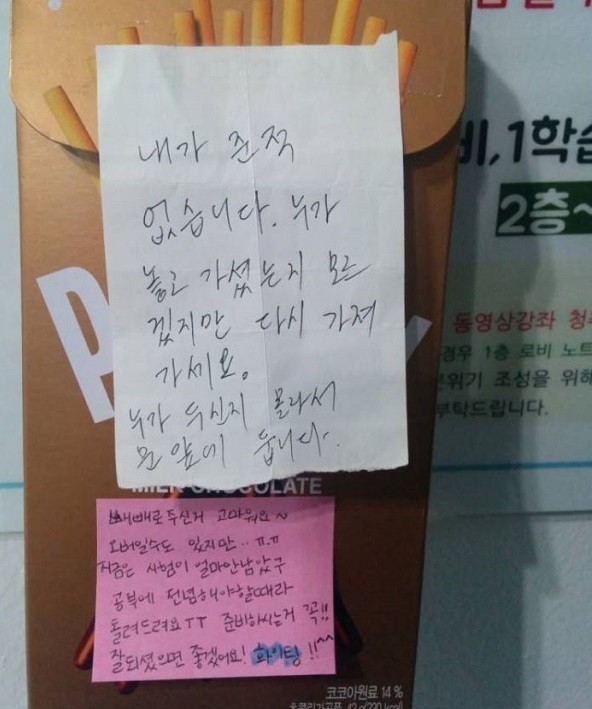 내가 준적
없습니다. 누가
놓고 가셨는지 모르
겠지만 다시 가져
가세요.
누가 두신지 몰라서
문 앞에 둡니다.
MILK CHOCOLATE
빼빼로 주신거 고마워요~
오버일수도 있지만.. ㅠ.ㅠ
저금은 시험이 얼마안남았구
공부에 전념해야할때라
돌려드려요ㅜㅜ 준비하시는거 꼭!!
잘되셨으면 좋겠어요! 화이팅!!^^
코코아원료 14%
비, 1학습
2층~
동영상강좌 청
경우 1층 로비 노트
분위기 조성을 위해
부탁드립니다.